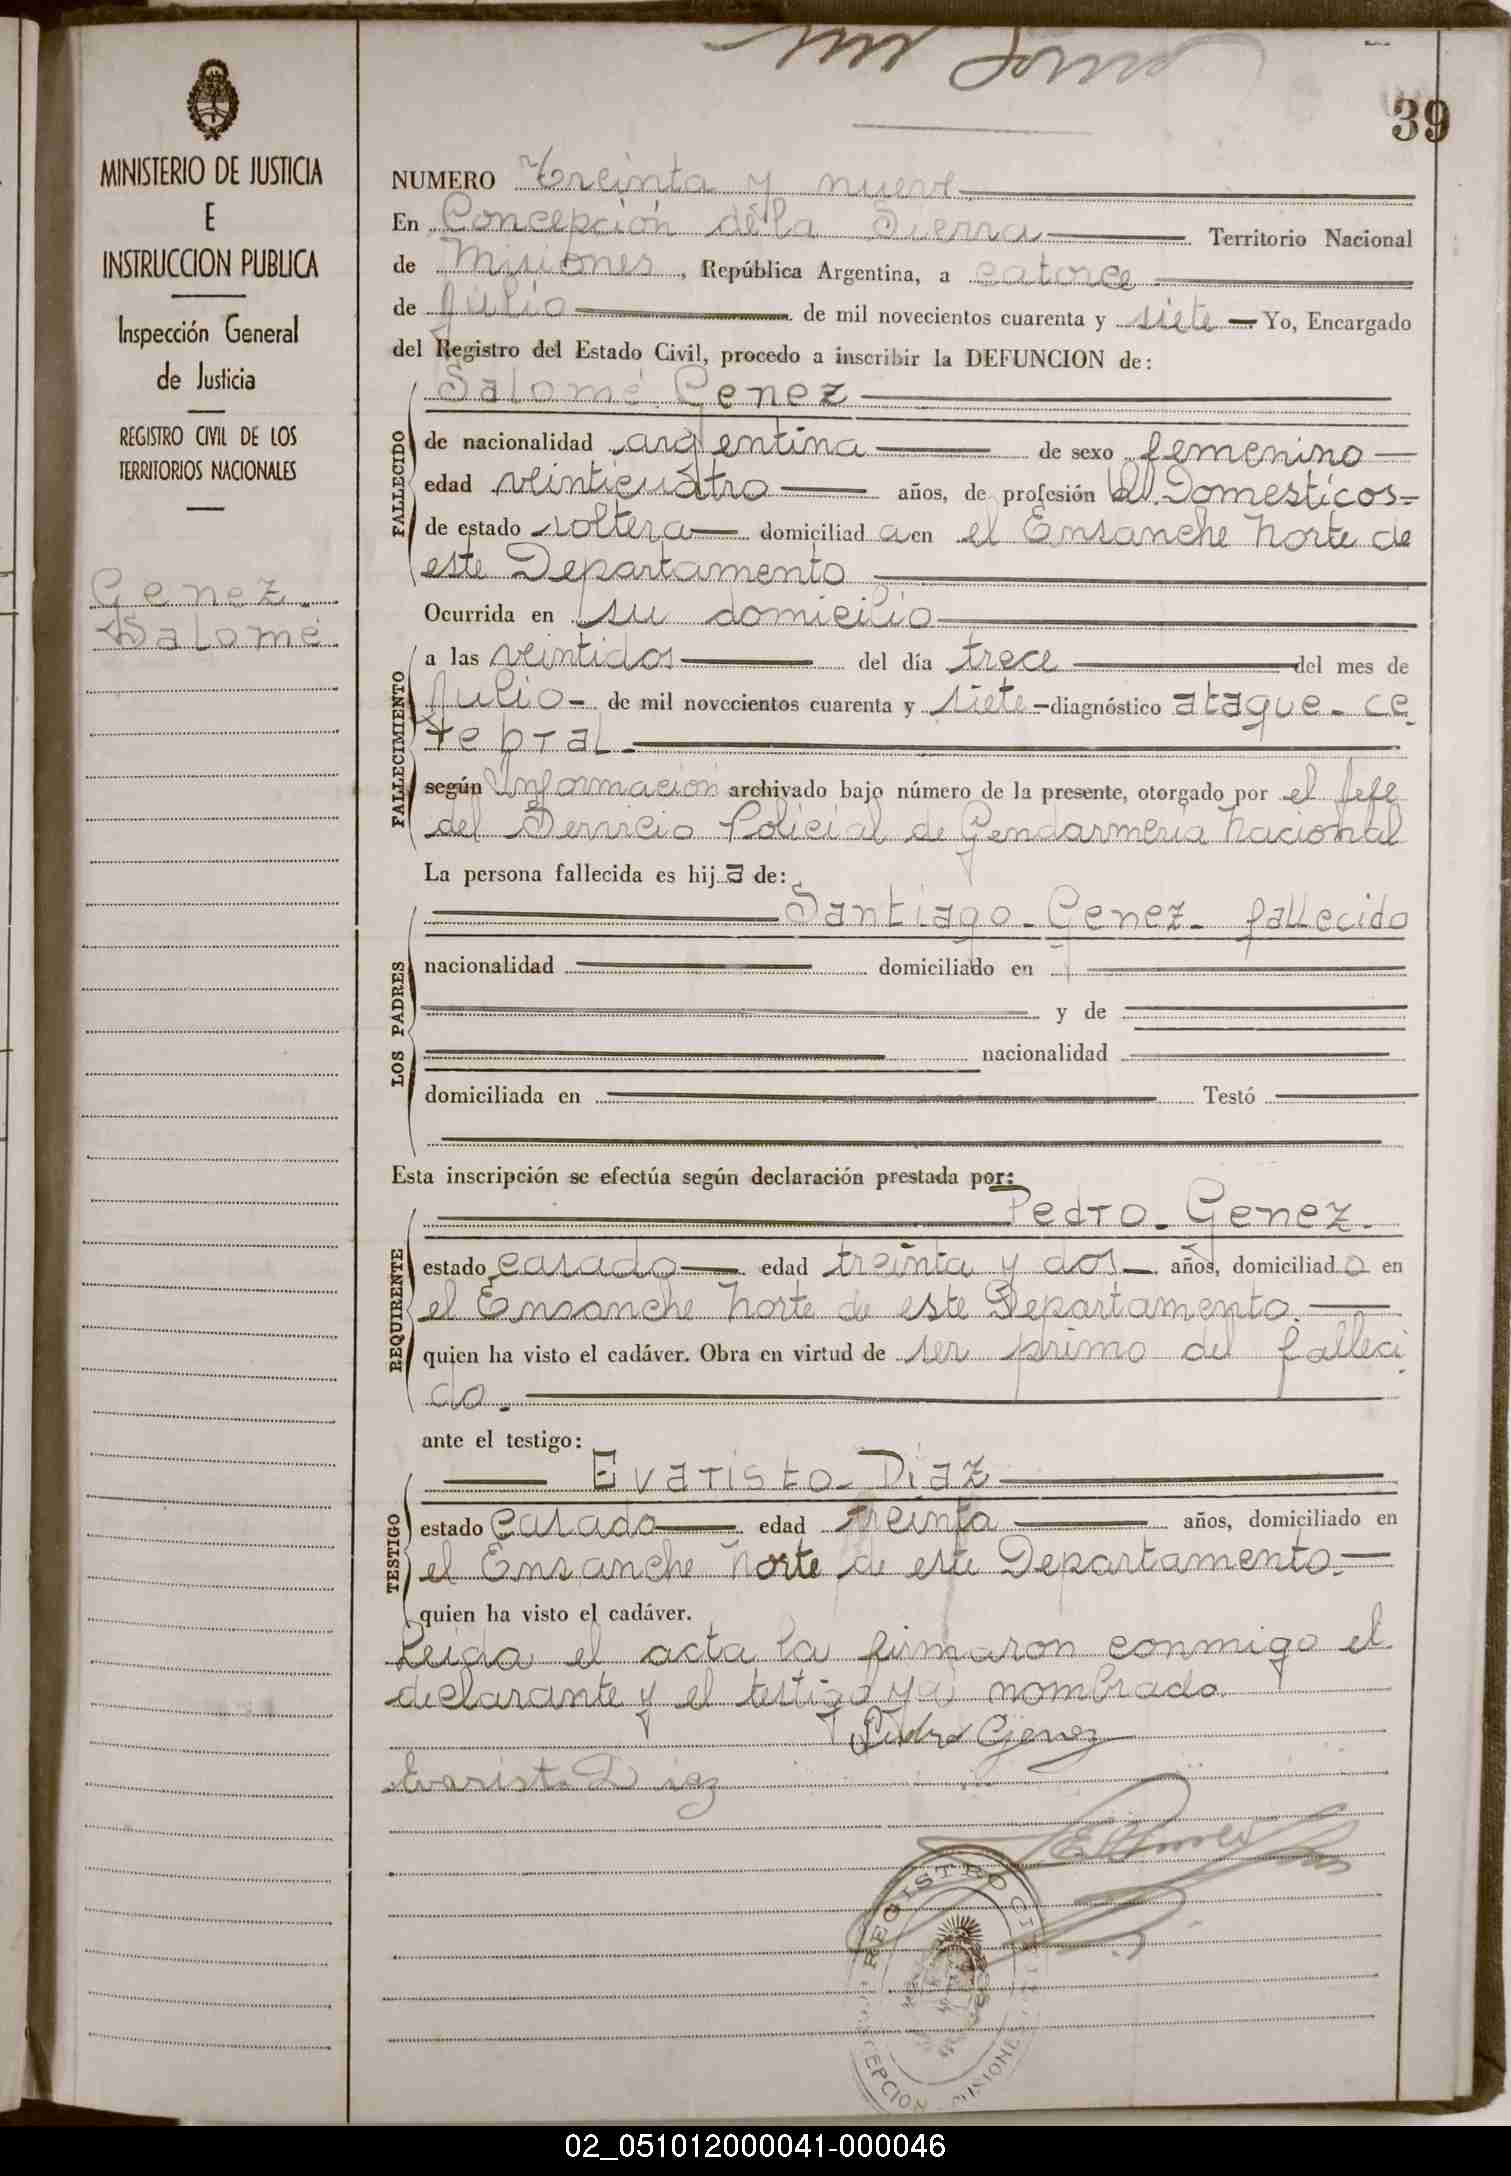 39
MINISTERIO DE JUSTICIA
E
INSTRUCCION PUBLICA
Inspección General
de Justicia
REGISTRO CIVIL DE LOS
TERRITORIOS NACIONALES
Genez
Salomé
NUMERO Treinta y nueve
En Concepción de la Sierra Territorio Nacional
de Misiones, República Argentina, a catorce
de Julio de mil novecientos cuarenta y siete Yo, Encargado
del Registro del Estado Civil, procedo a inscribir la DEFUNCION de:
Salomé Genez
FALLECIDO
de nacionalidad argentina de sexo femenino
edad veinticuatro años, de profesión Domesticos
de estado soltera domiciliad a en el Ensanche Norte de
este Departamento
Ocurrida en su domicilio
FALLECIMIENTO
a las veintidos del día trece del mes de
Julio de mil novecientos cuarenta y siete diagnóstico ataque ce-
rebral
según Información archivado bajo número de la presente, otorgado por el Jefe
del Servicio Policial de Gendarmeria Nacional
La persona fallecida es hij a de:
LOS PADRES
Santiago Genez fallecido
nacionalidad domiciliado en
y de
nacionalidad
domiciliada en Testó
Esta inscripción se efectúa según declaración prestada por:
REQUIRENTE
Pedro Genez
estado casado edad treinta y dos años, domiciliad o en
el Ensanche Norte de este Departamento.
quien ha visto el cadáver. Obra en virtud de ser primo del falleci-
do.
ante el testigo:
TESTIGO
Evaristo Diaz
estado casado edad treinta años, domiciliado en
el Ensanche Norte de este Departamento.
quien ha visto el cadáver.
Leida el acta la firmaron conmigo el
declarante y el testigo ya nombrado
Pedro Genez
Evaristo Diaz
REGISTRO CIVIL
02_051012000041-000046